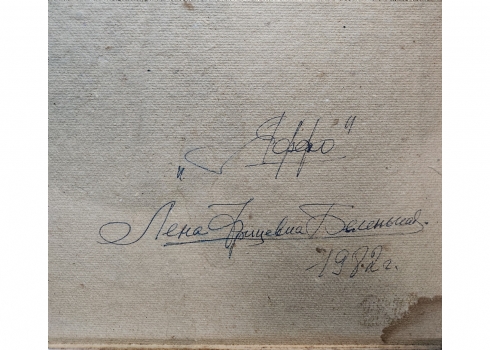 „Яффо"
Лена Фрицевна Беленькая.
1982 г.